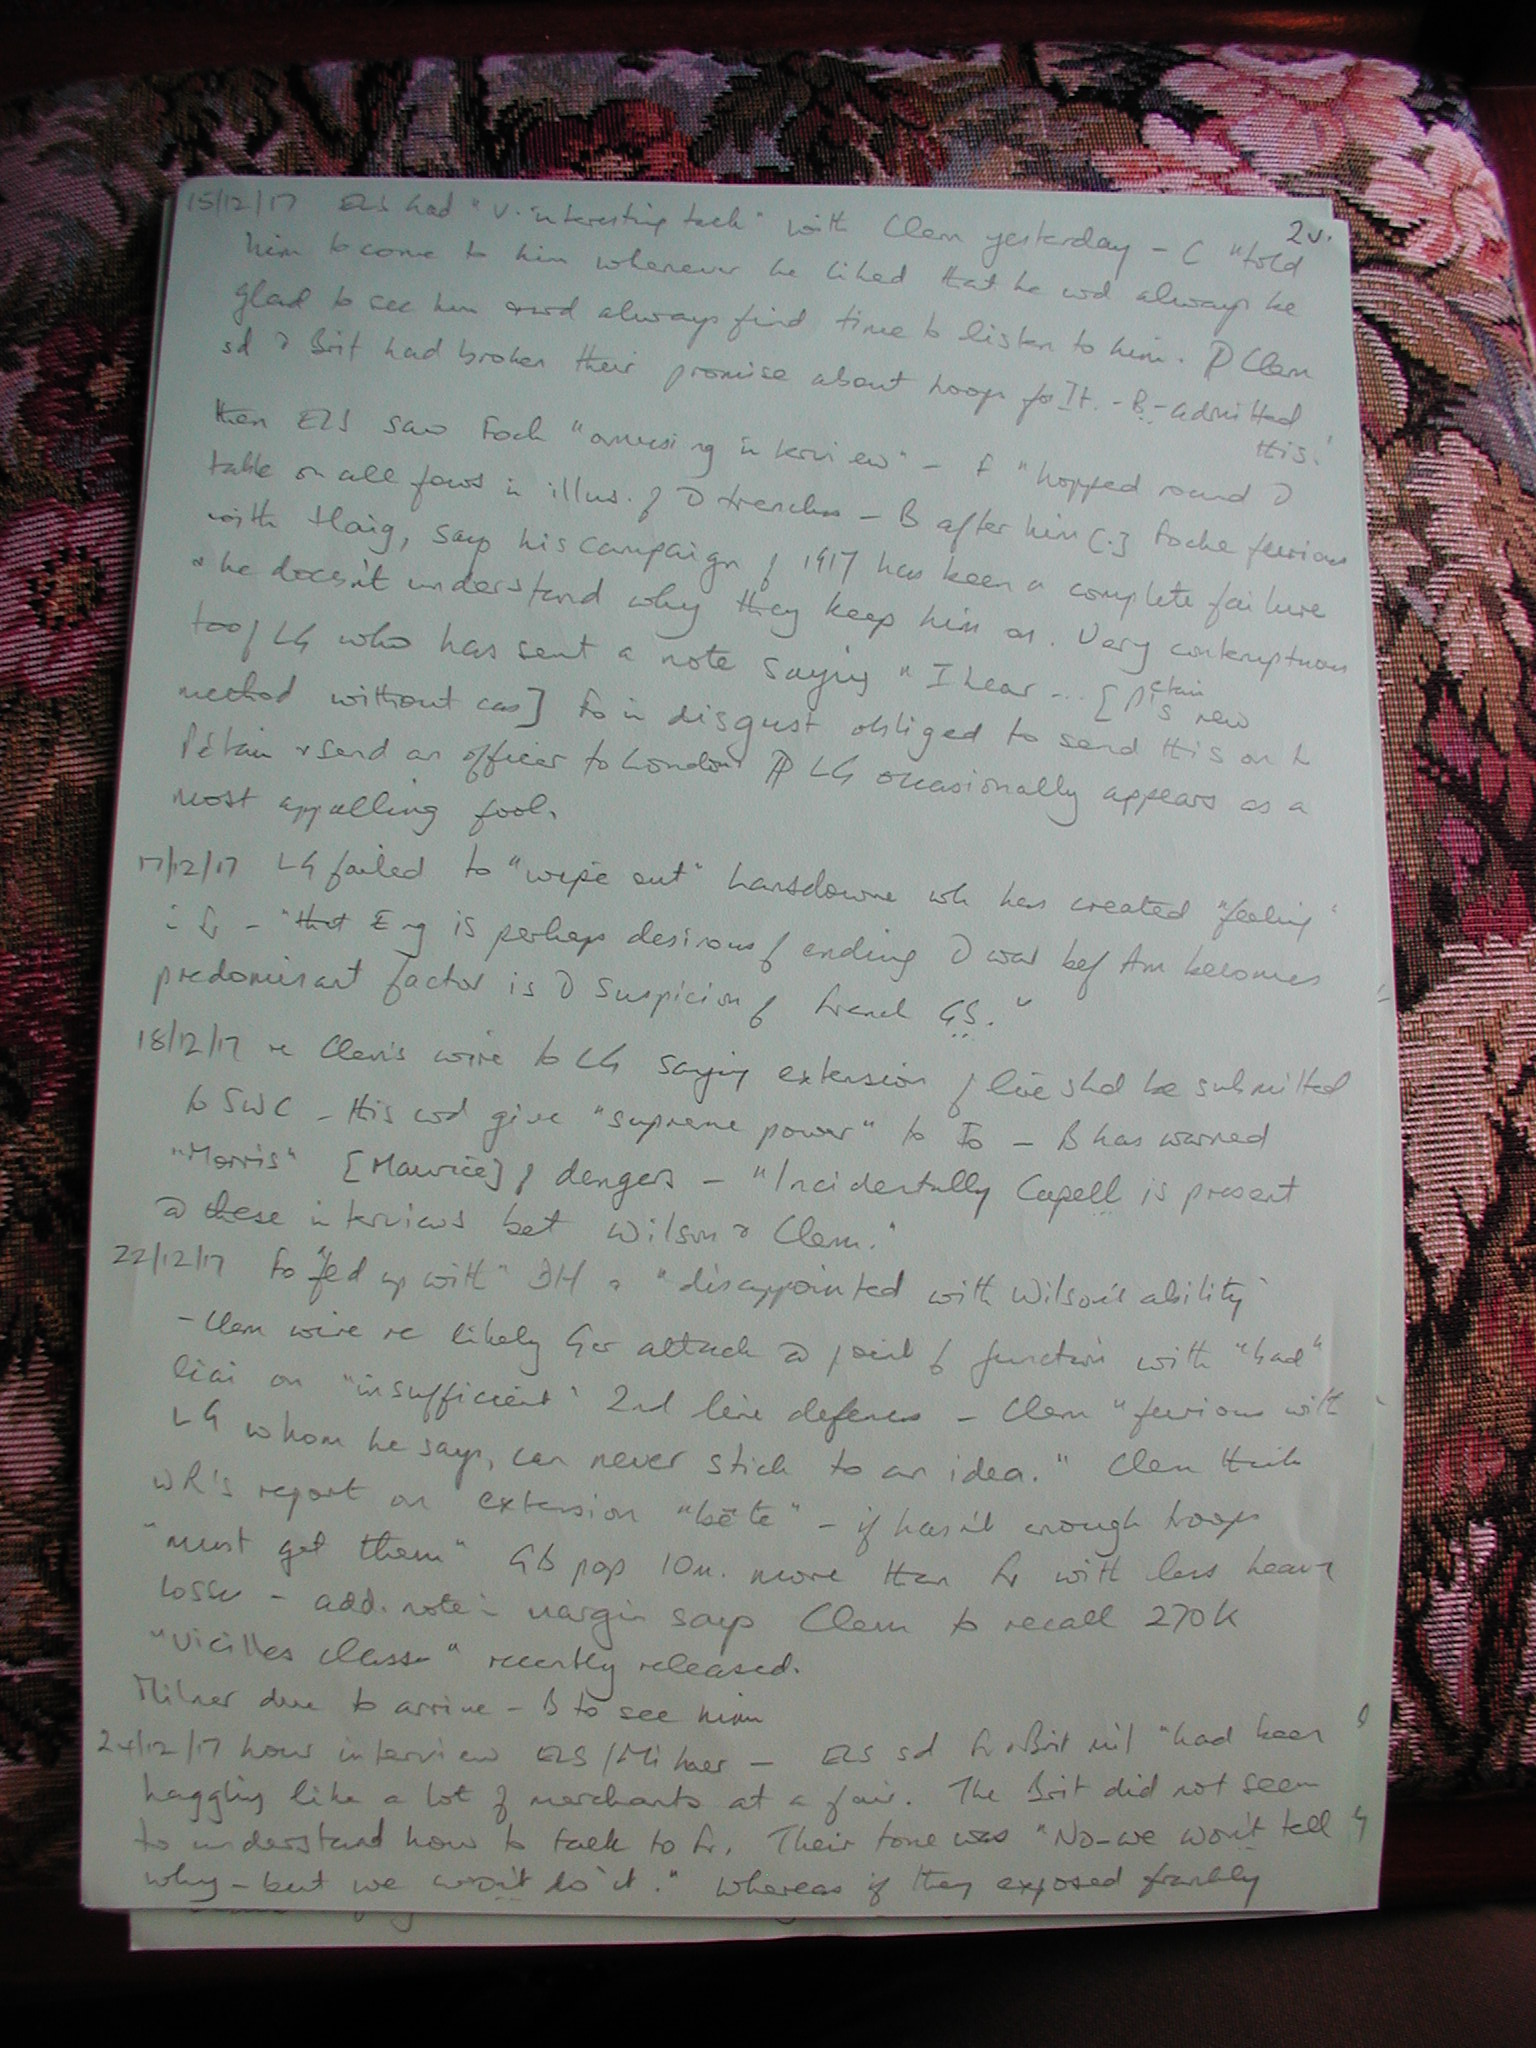 2v.
15/12/17 ELS had "v. interesting talk" with Clem yesterday – C "told
him to come to him whenever he liked that he wd always be
glad to see him & wd always find time to listen to him. Clem
sd Brit had broken their promise about troops for It. – B – admitted
this.'
then ELS saw Foch "amusing interview" – F "hopped round
table on all fours in illus. of trenches – B after him [.] Foche furious
with Haig, says his campaign of 1917 has been a complete failure
& he doesn't understand why they keep him on. Very contemptuous
too of LG who has sent a note saying "I hear ... [Pétain's new
method without cas] Fo in disgust obliged to send this on to
Pétain & send an officer to London LG occasionally appears as a
most appalling fool.
17/12/17 LG failed to "wipe out" Lansdowne wh has created "feeling"
in Fr – "that Eng is perhaps desirous of ending war bef Am becomes
predominant factor is suspicion of French GS."
18/12/17 re Clem's wire to LG saying extension of line shd be submitted
to SWC – this wd give "supreme power" to Fo – B has warned
"Morris" [Maurice] of dangers – "Incidentally Capell is present
@ these interviews bet Wilson & Clem."
22/12/17 Fo "fed up with" DH & "disappointed with Wilson's ability"
– Clem wire re likely Ger attack @ point of junction with "bad"
liaison "insufficient" 2nd line defences – Clem "furious with
LG whom he says, can never stick to an idea." Clem think
WR's report on extension "bête" – if hasn't enough troops
"must get them" GB pop 10m. more than Fr with less heavy
losses – add. note in margin says Clem to recall 270K
"vieilles classes" recently released.
Milner due to arrive – B to see him
24/12/17 hour interview ELS/Milner – ELS sd Fr & Brit mil "had been
haggling like a lot of merchants at a fair. The Brit did not seem
to understand how to talk to Fr. Their tone was "No – we won't tell y
why – but we won't do it." Whereas if they exposed frankly